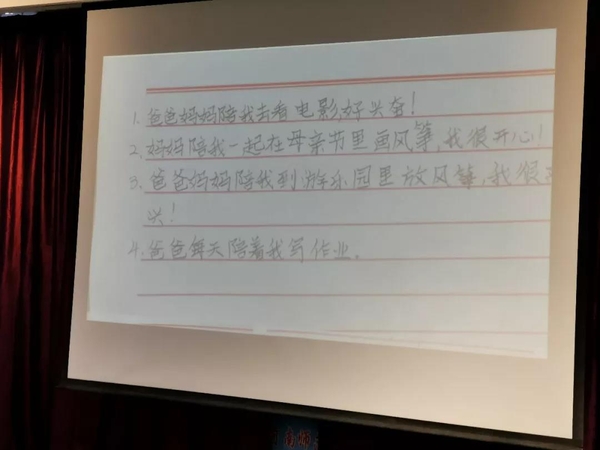 1. 爸爸妈妈陪我去看电影,好兴奋!
2. 妈妈陪我一起在母亲节里画风筝,我很开心!
3. 爸爸妈妈陪我到游乐园里放风筝,我很
兴!
4. 爸爸每天陪着我写作业。